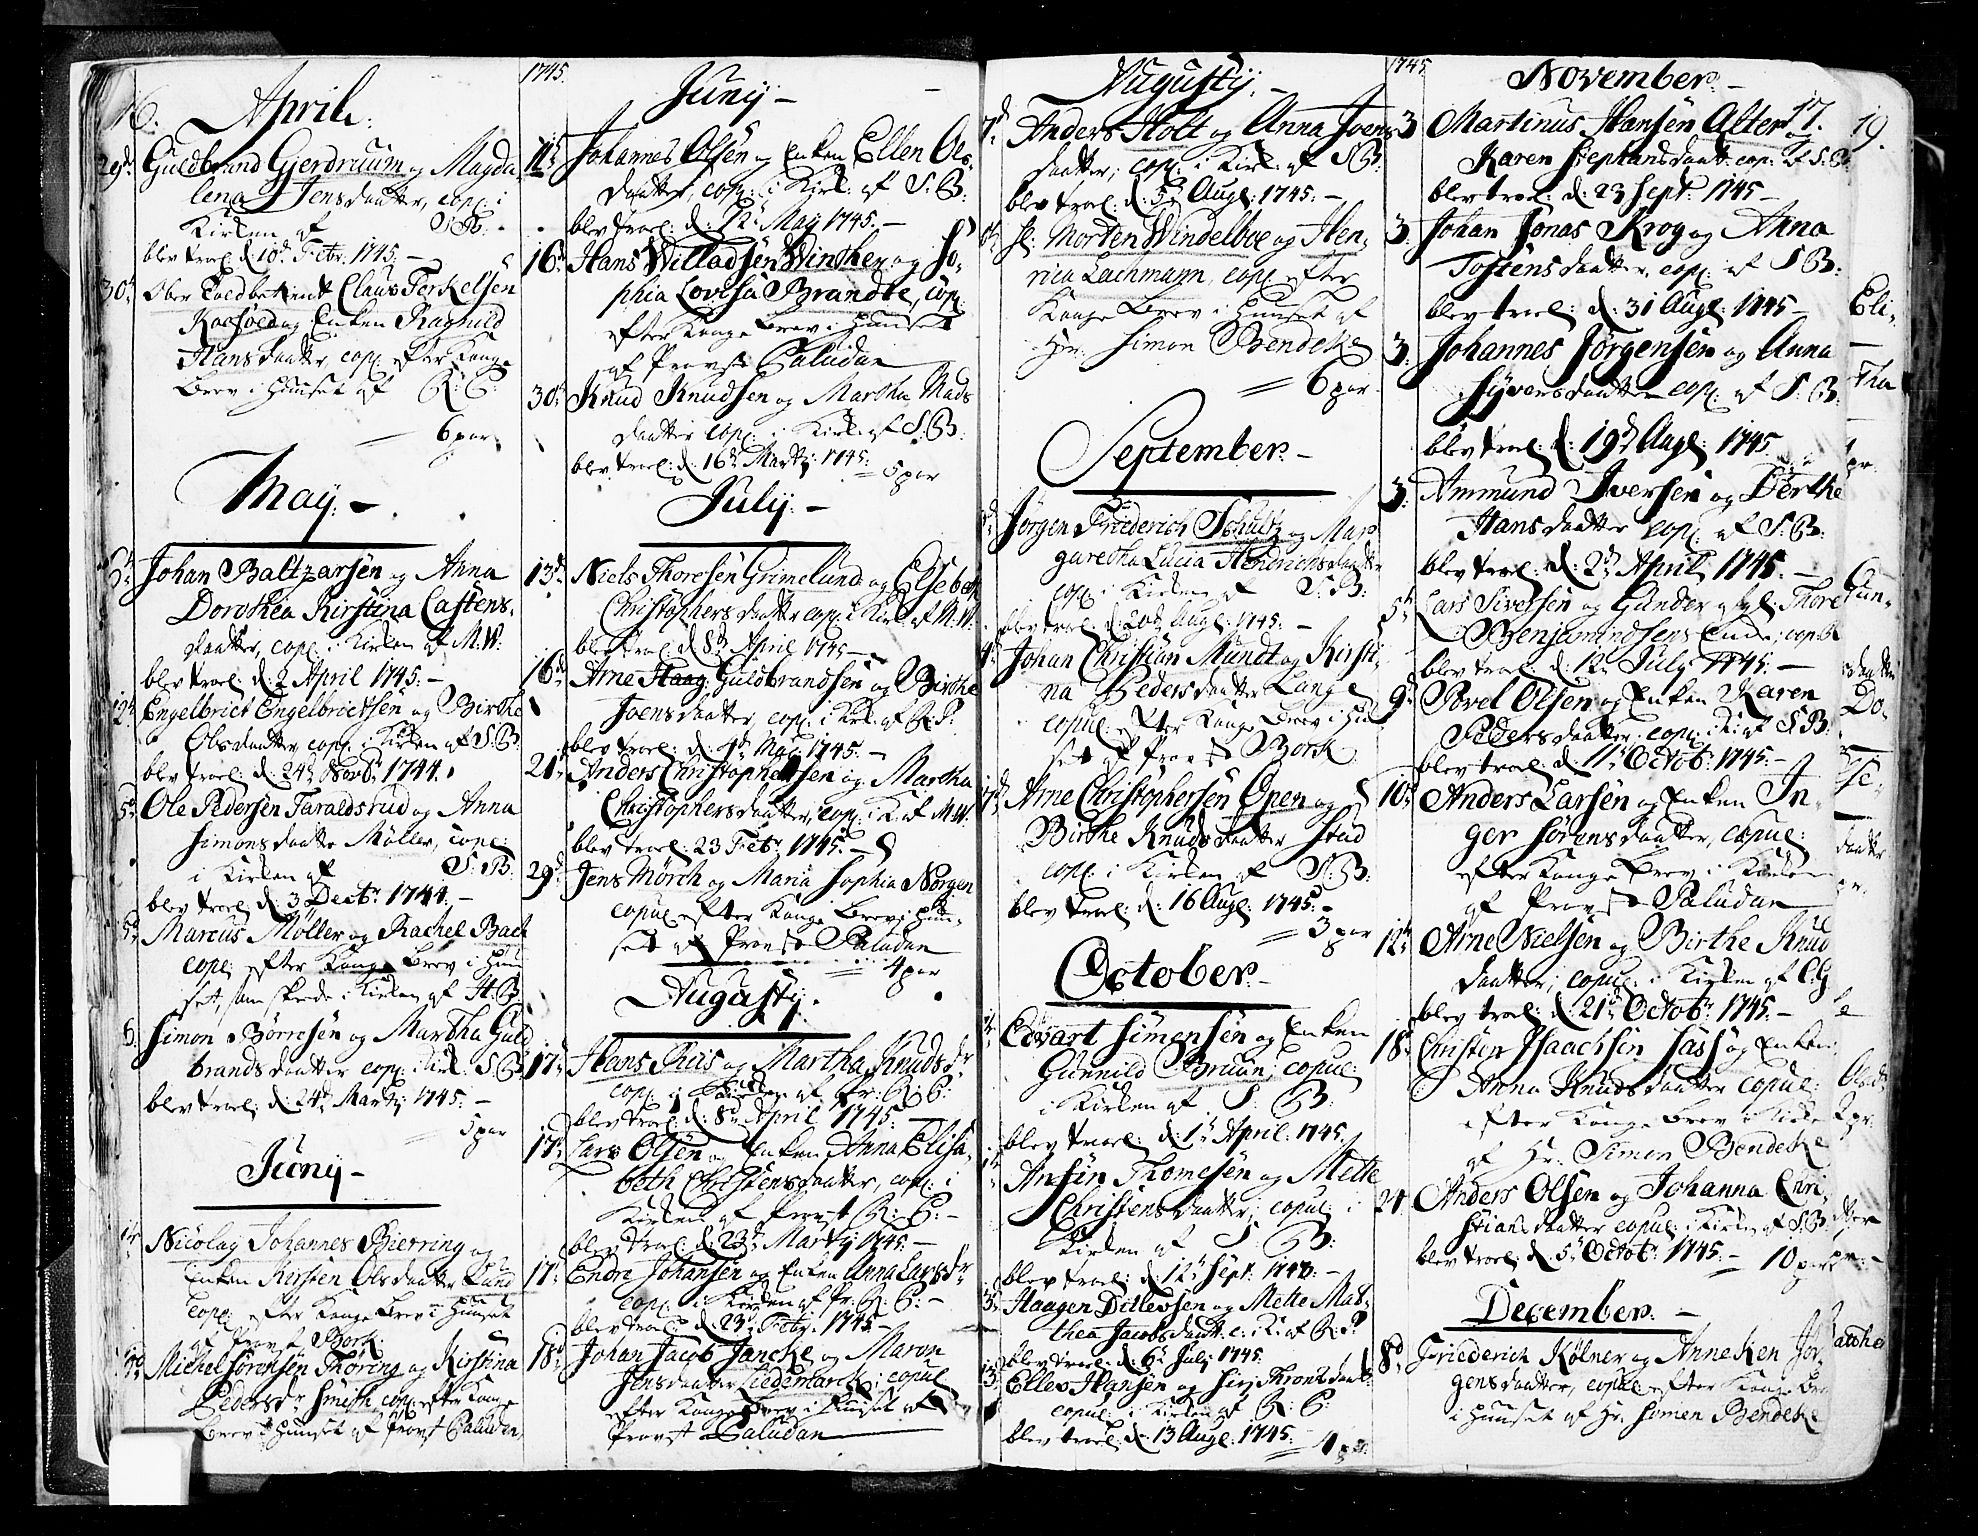 16.
April.
29d Guldbrand Gjerdruum og Magda-
lena Jensdaatter, copl: i
Kirken af S:B:
blev trol: d: 10d Febr: 1745. –
30d Ober Toldbetient Claus Terkelsen
Kaasøed og Enken Ragnild
Hansdaatter, copl: efter Konge
Brev i Huuset af R: P:
6 par.
May. –
5t Johan Baltzarsen og Anna
Dorothea Kirstina Castens-
daatter, copl: i Kirken af M.W:
blev trol: d: 2 April 1745. –
12t Engelbrict Engelbrictsen og Birthe
Olsdaatter copl: i Kirken af S:B:
blev trol: d: 24de Novb: 1744.
5t Ole Pedersen Taraldsrud og Anna
Simonsdaatter Møller, copl:
i Kirken af S:B:
blev trol: d: 3 Decbr 1744. –
5t Marcus Møller og Rachel Bach
copl: efter Konge Brev i Huu-
set, som skede i Kirken af H.B:
6. Simon Børresen og Martha Guld
brandsdaatter copl: i Kirk: S:B:
blev trol: d: 24de Marty 1745. –
5 par
Juny –
Nicolay Johannes Bierring og
Enken Kirsten Olsdaatter Lund
copl: efter Konge Brev i Huuset
af Provst Bork.
Michel Sørensen Thøring og Kirstina
Pedersdr Smith copl: efter Konge
Brev i Huuset af Provst Paludan,
1745.
Juny –
11t Johannes Olsen og Enken Ellen Ols-
daatter, copl: i Kirk: af S:B:
blev trol: d: 12t May 1745. –
16d Hans Willadsen Winther og So-
phia Lovisa Brandte, copl:
efter Konge Brev i Huuset
af Provst Paludan
30d Knud Knudsen og Martha Mads
daatter copl: i Kirk: af S:B:
blev trol: d: 16de Marty 1745.
5 par
July. –
13d Niels Thoresen Grimelund og Elsebeth
Christophersdaatter copl: i Kirk: af M.W:
blev trol: d: 8de April 1745 –
16d Arne Haag Guldbrandsen og Birthe
Joensdaatter, copl: i Kirk: af R:P:
blev trol: d: 4de May 1745. –
21d Anders Christophersen og Martha
Christophersdaatter, copl: i K: af M.W:
blev trol: 23 Febr: 1745. –
29d Jens Mørch og Maria Sophia Nørgen
copul: efter Konge Brev i Huu-
set af Provst Paludan
4 par
Augusty.
17d Hans Riis og Martha Knudsdr
copl: i Kirken af Pr: R: P:
blev trol: d: 8de April 1745.
17d Lars Olsen og Enken Anna Elisa-
beth Christensdaatter, copl: i
Kirken af Provst R: P: –
blev trol: d: 23de Marty 1745. –
17d Endre Johansen og Enken Anna Larsdr
copl: i Kirken af Pr: R: P: –
blev trol: d: 23de Febr: 1745 –
18d Johan Jacob Jancke og Maren
Jensdaatter Liedemarck, copul
efter Konge Brev i Huuset af
Provst Paludan
Augusty. –
7d Anders Holt og Anna Joens
daatter, copl: i Kirk: af S:B:
blev trol: d: 5de Augl: 1745. –
Hr: Morten Windelboe og Hen-
rica Lachmann, copl: efter
Konge Brev i Huuset af
Hr: Simon Bendeke
6 par
September. –
Jørgen Friederich Schultz og Mar
garetha Lucia Hendrichsdaatter
copl: i Kirken af S:B:
blev trol: d: 20de Augl: 1745. –
Johan Christian Mundt og Kirsti-
na Pedersdaatter Lange
copul: efter Konge Brev i Huu
set af Provst Bork
Arne Christophersen Open og
Birthe Knudsdaatter Stud
copl: i Kirken af S:B:
blev trol: d: 16 Augl: 1745. –
3 par
October. –
Edvart Simensen og Enken
Gunnild Bruun, copul:
i Kirken af S: B:
blev trol: d: 1te April 1745.
Ansøn Thomesen og Mette
Christensdaatter, copul: i
Kirken af S: B:
blev trol: d: 12te Sept: 1745. –
Haagen Ditlevsen og Mette Mat-
thea Jacobsdaatt: c: i K: af R:P:
blev trol: d: 6te July 1745.
Ellev Hansen og Siri Thronsdaatt:
copul: i Kirken af R: P:
blev trol: d: 13 Augl: 1745. –
4 par
1745
November. –
17.
3 Martinus Hansen Alter og
Karen Stephansdaatt: cop: af S:B:
blev trol: d: 23 Sept: 1745 –
3: Johan Jonas Krog og Anna
Tostensdaatter, copl: af S:B:
blev trol: d: 31 Augl: 1745 –
3: Johannes Jørgensen og Anna
Syversdaatter copl: af S:B:
blev trol: d: 19de Augl: 1745
3: Ammund Iversen og Berthe
Hansdaatter copl: af S:B:
blev trol: d: 2de April 1745. –
5t Lars Siversen og Gunder Thore
Benjamindsens Enke, cop:
blev trol: d: 12te July 1745. –
9d Povel Olsen og Enken Karen
Pedersdaatter, copl: i K: af S:B:
blev trol: d: 11te Octob: 1745. –
10d Anders Larsen og Enken In-
ger Sørensdaatter, copul:
efter Konge Brev i Kirken
af Provst Paludan
12t Arne Nielsen og Birthe Knud
daatter, copul: i Kirken af C:G
blev trol: d: 21de Octobr 1745. –
18d Christen Isaachsen Sass og Enken
Anna Knudsdaatter copul:
efter Konge Brev i Kirken
af Hr: Simon Bendeke
24 Anders Olsen og Johanna Chri-
stiansdaatter copul: i Kirken af S:B:
blev trol: d: 5te Octob: 1745. – 10 par
December. –
8d Friederich Kølner og Anneken Jør-
gensdaatter, copul: efter Konge Brev
i Huuset af Hr: Simen Bendeke
19.
Eli-
Tha
Gun-
daatter
Do-
daatter